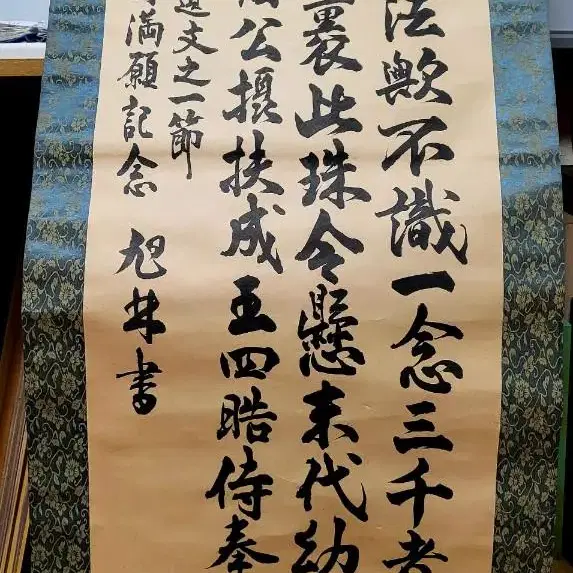 法歟不識一念三千者
裹此珠令懸末代幼
公攝扶成王四晧侍奉
遺文之一節
満願記念 旭林書